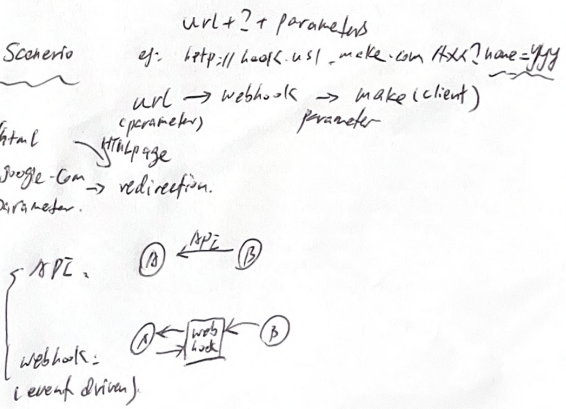 url + ? + parameters
Scenerio
eg: http://hook.us1.make.com/txx?name=yyy
url → webhook → make (client)
(parameter) parameter
html
HTML page
google.com → redirection.
parameter.
API:
A ← API B
webhook:
A web hook B
(event driven).